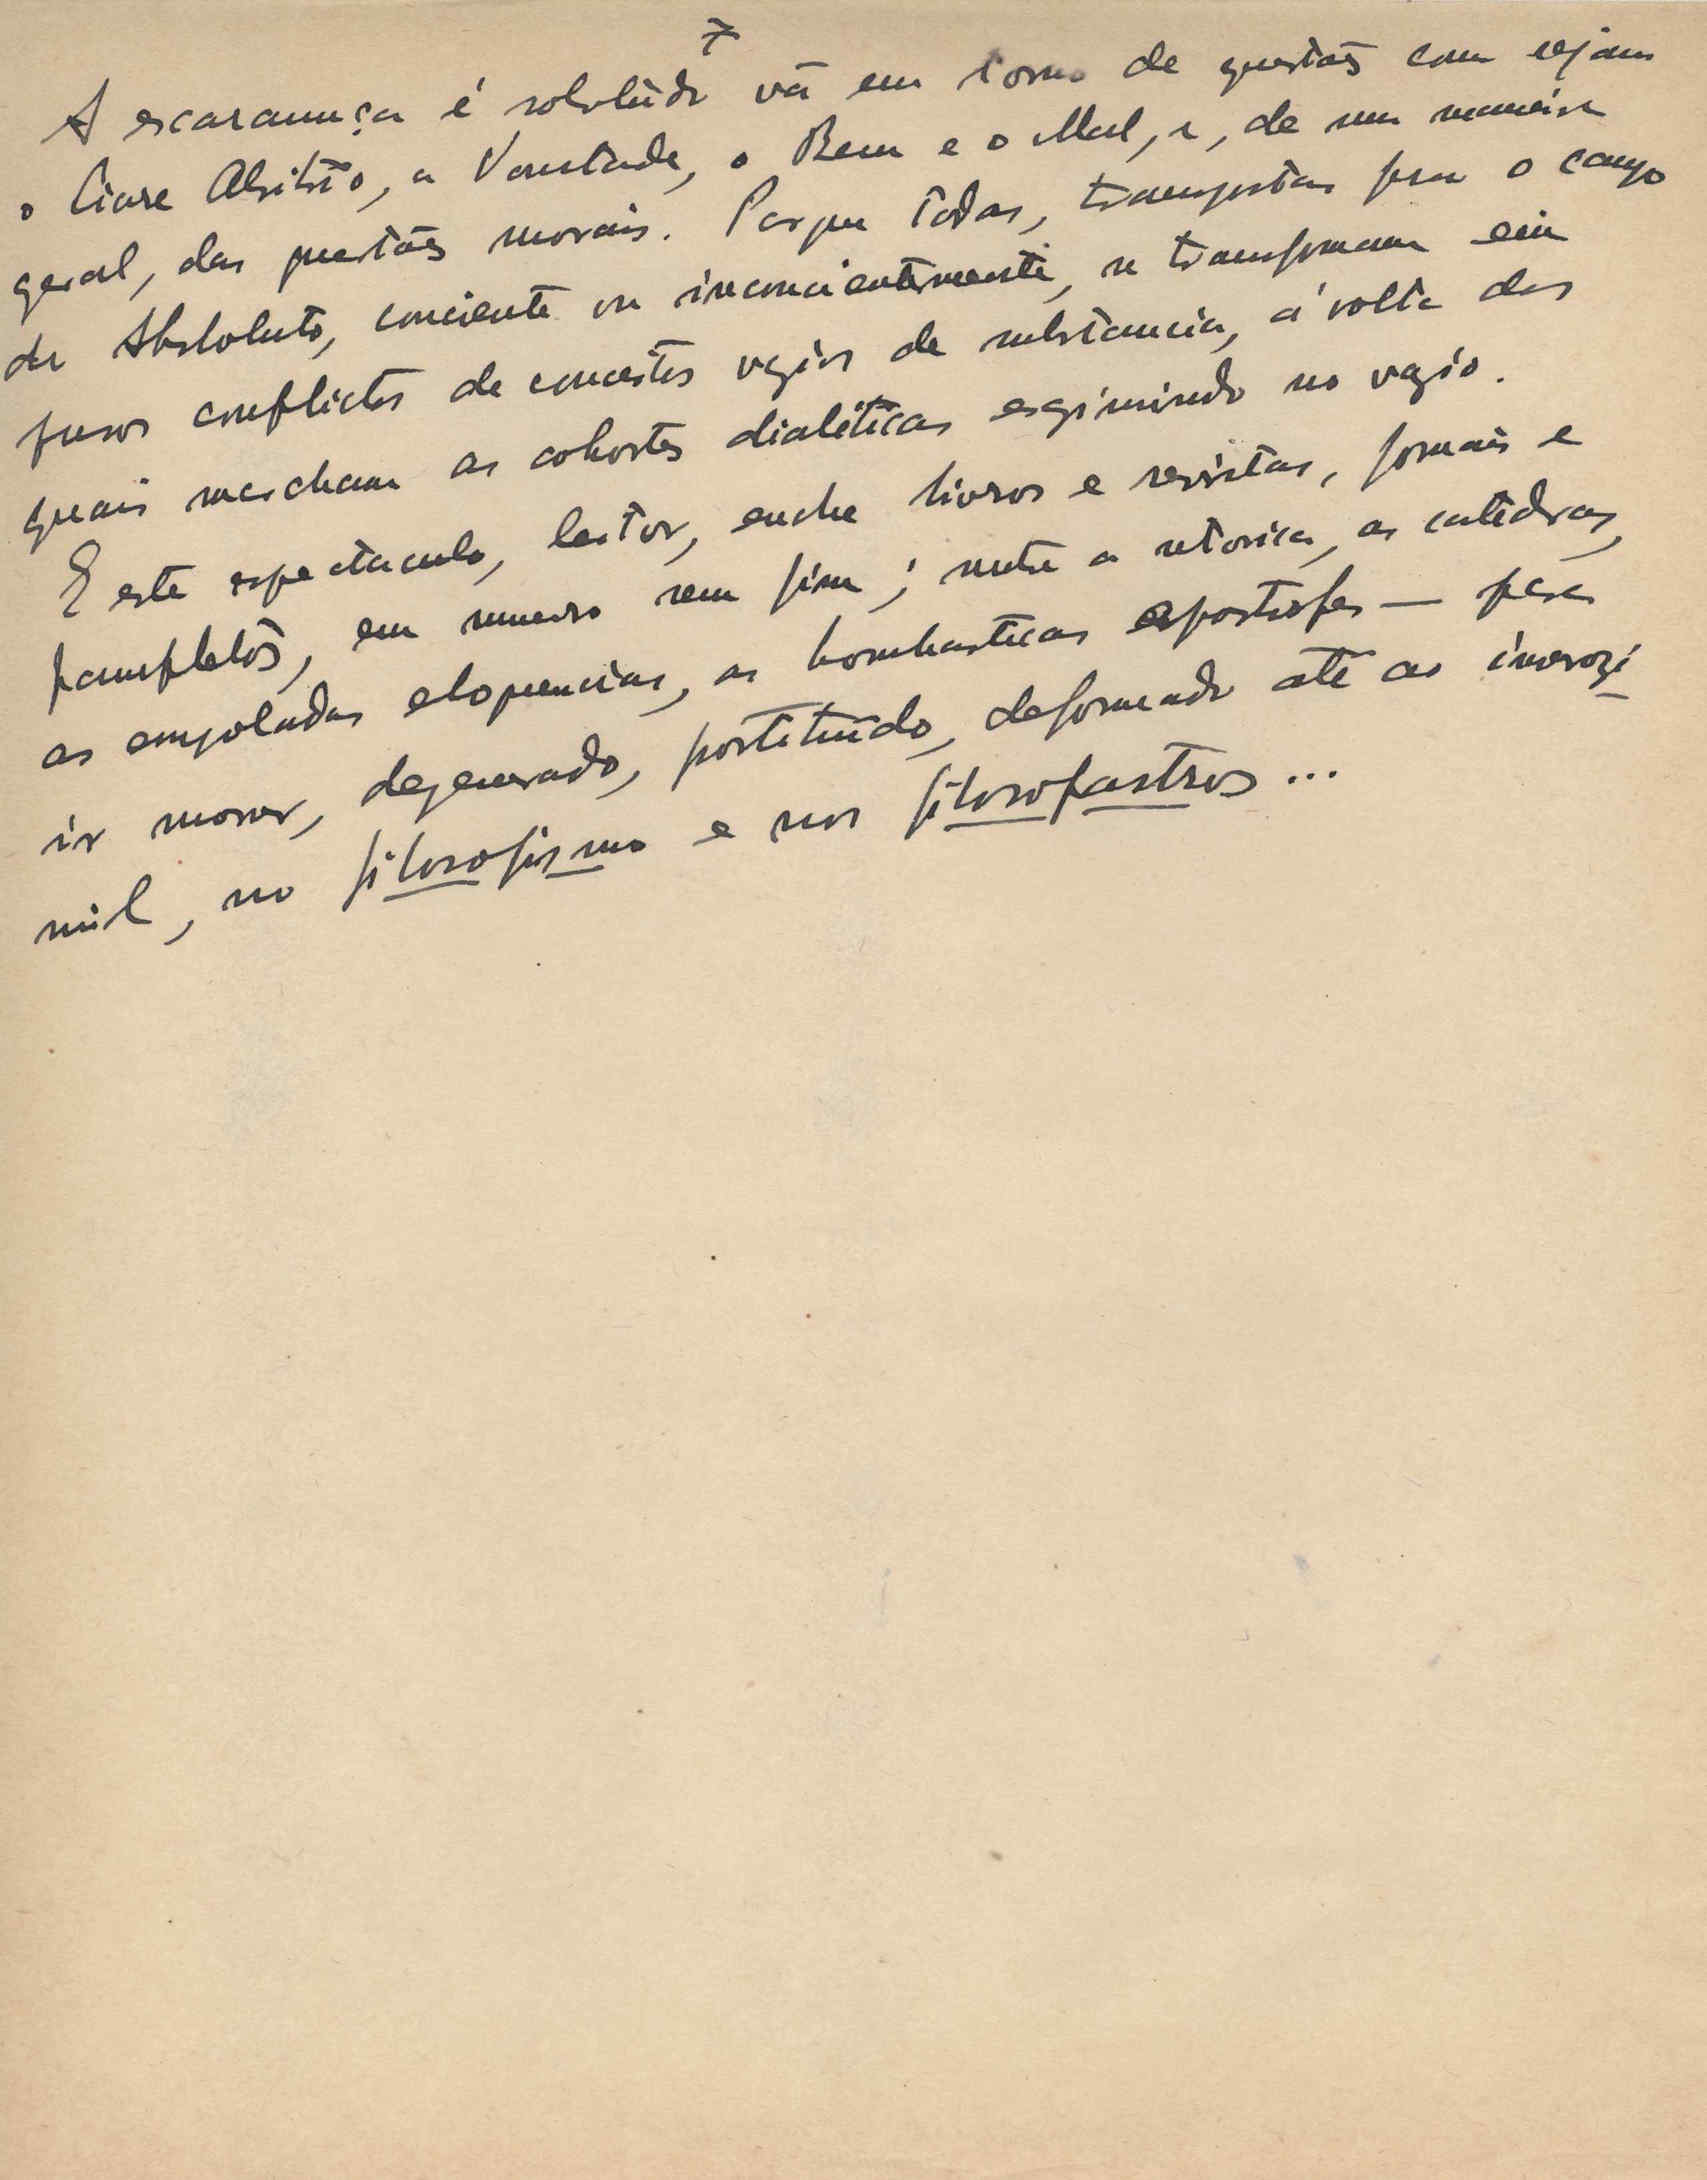 7
A escaramuça é sobretudo vã em torno de questões como sejam
o Livre Arbitrio, a Vontade, o Bem e o Mal, e, de uma maneira
geral, das questões morais. Porque todas, transpostas para o campo
do Absoluto, conciente ou inconcientemente, se transformam em
puros conflictos de conceitos vazios de substancia, á volta dos
quais marcham as cohortes dialéticas esgrimindo no vazio.
E este espectaculo, leitor, enche livros e revistas, jornais e
panfletos, em numero sem fim; nutre a retorica, as catedras,
as empoladas eloquencias, as bombasticas apostrofes — para
ir morrer, degenerado, prostituido, deformado até ao inverozi-
mil, no filosofismo e nos filosofastros...